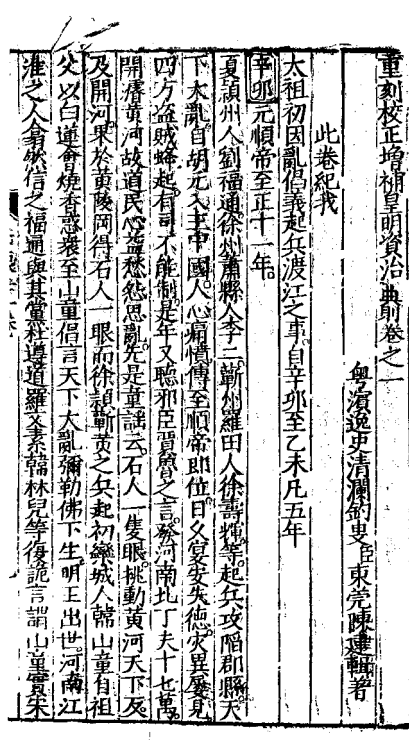 重刻校正增補皇明資治典則卷之一
粤濱逸史清瀾釣叟臣東莞陳建輯著
此卷紀我
太祖初因亂倡義起兵渡江之事自辛卯至乙未凡五年
辛卯元順帝至正十一年
夏潁州人劉福通徐州蕭縣人李二蘄州羅田人徐壽輝等起兵攻陷郡縣天
下大亂自胡元入主中國人心痛憤傳至順帝即位日久宴安失德災異屢見
四方盗賊蜂起有司不能制是年又聽邪臣賈魯之言發河南北丁夫十七萬
開濬黃河故道民心益愁怨思亂先是童謡云石人一隻眼挑動黃河天下反
及開河果於黃陵岡得石人一眼而徐潁蘄黃之兵起初欒城人韓山童自祖
父以白蓮會燒香惑衆至山童倡言天下大亂彌勒佛下生明王出世河南江
淮之人翕然信之福通與其黨杜遵道羅文素韓林兒等復詭言謂山童實宋